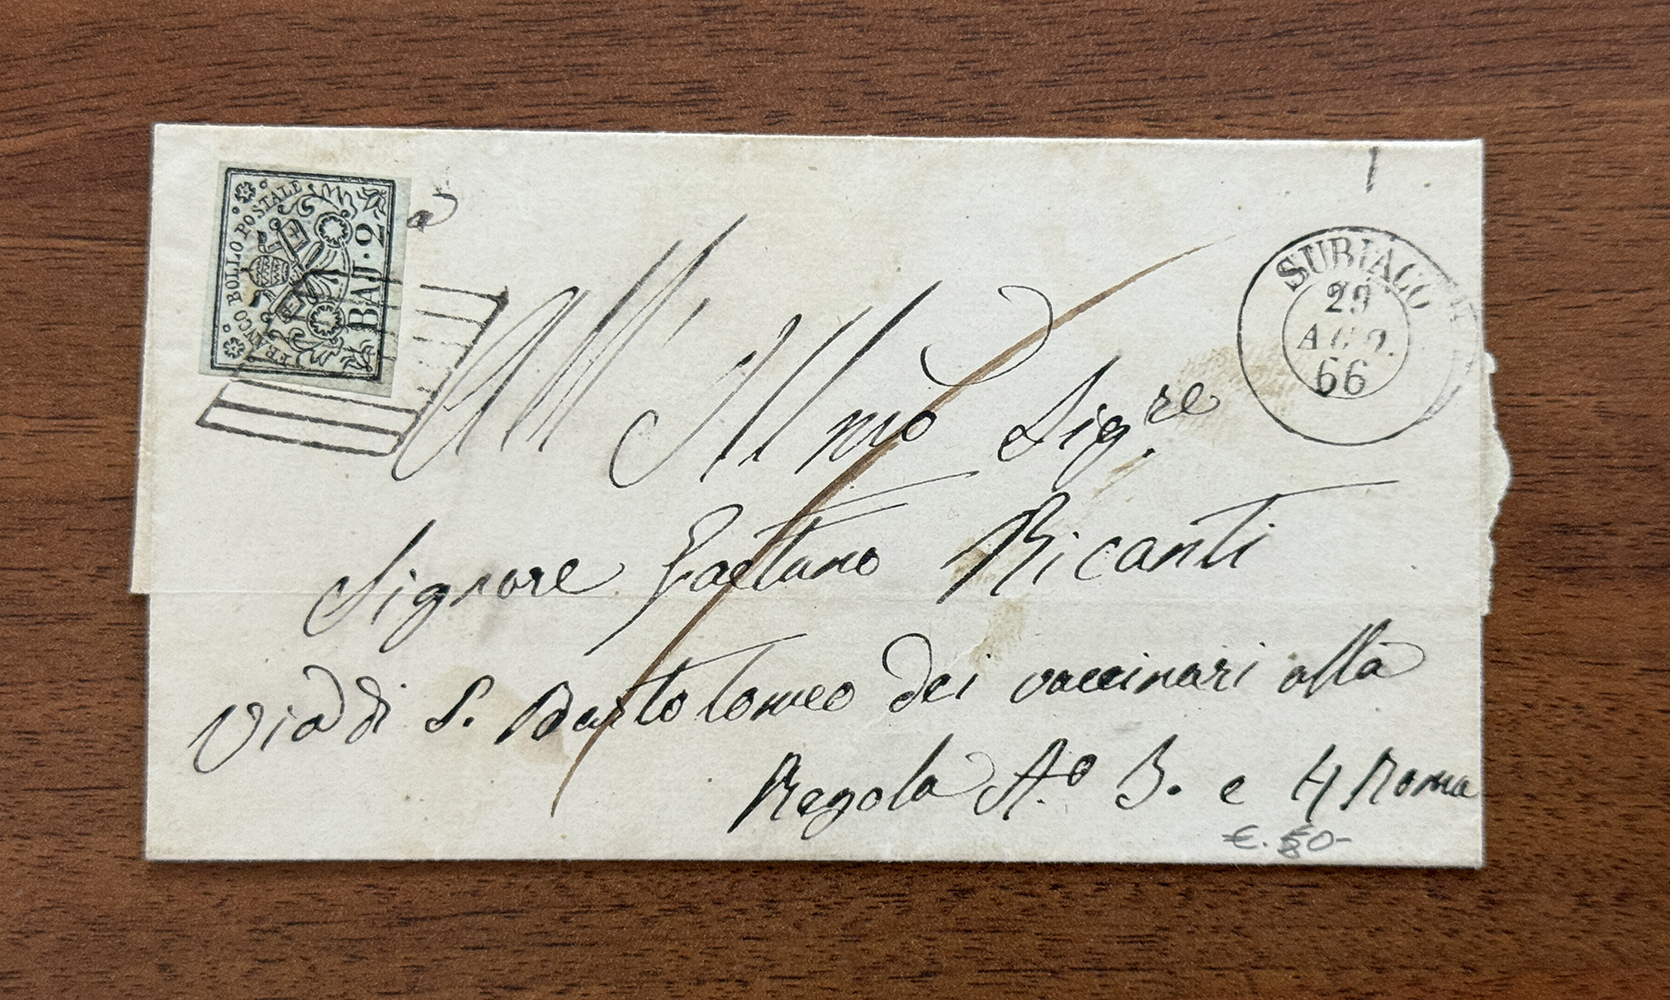 FRANCO BOLLO POSTALE
BAJ. 2
SUBIACO
29
AGO.
66
All' Illmo Sigre
Signore Gaetano Ricanti
Via di S. Bartolomeo dei vaccinari alla
Regola No 3. e 4 Roma